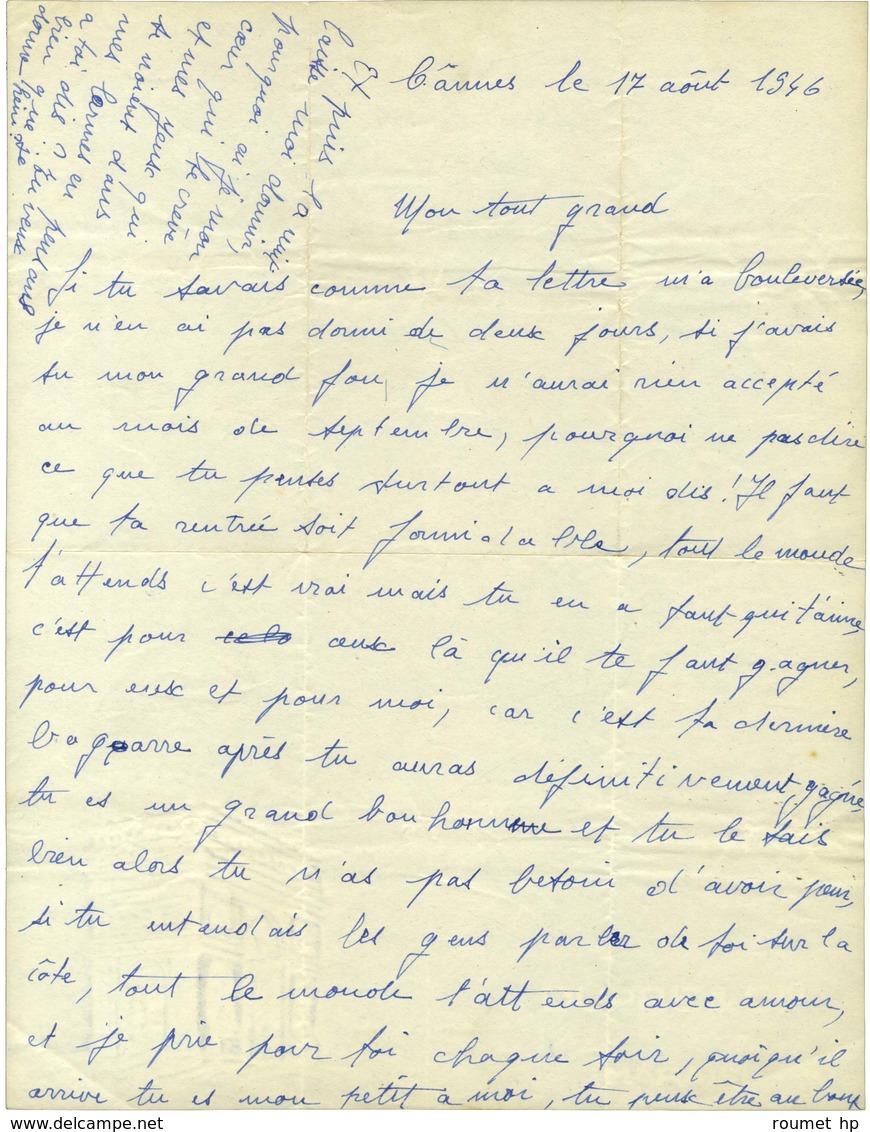 Cânnes le 17 aôut 1946
Mon tout grand
Si tu savais comme ta lettre m'a bouleversée,
je n'en ai pas dormi de deux jours, si j'avais
su mon grand fou, je n'aurai rien accepté
au mois de septembre, pourquoi ne pas dire
ce que tu penses surtout a moi dis! Il faut
que ta rentrée soit formidable, tout le monde
t'attends c'est vrai mais tu en a tant qui t'aime,
c'est pour ceux là qu'il te faut gagner,
pour eux et pour moi, car c'est ta dernière
bagarre après tu auras définitivement gagnée,
tu es un grand bonhomme et tu le sais
bien alors tu n'as pas besoin d'avoir peur,
si tu entendais les gens parler de toi sur la
côte, tout le monde t'attends avec amour,
et je prie pour toi chaque soir, quoiqu'il
arrive tu es mon petit a moi, tu peux être au bout
Et puis la nuit
laisse moi dormir
pourquoi ai-je mon
cœur qui se crève
et mes yeux qui
se noient dans
mes larmes
a toi
bien que tu veux